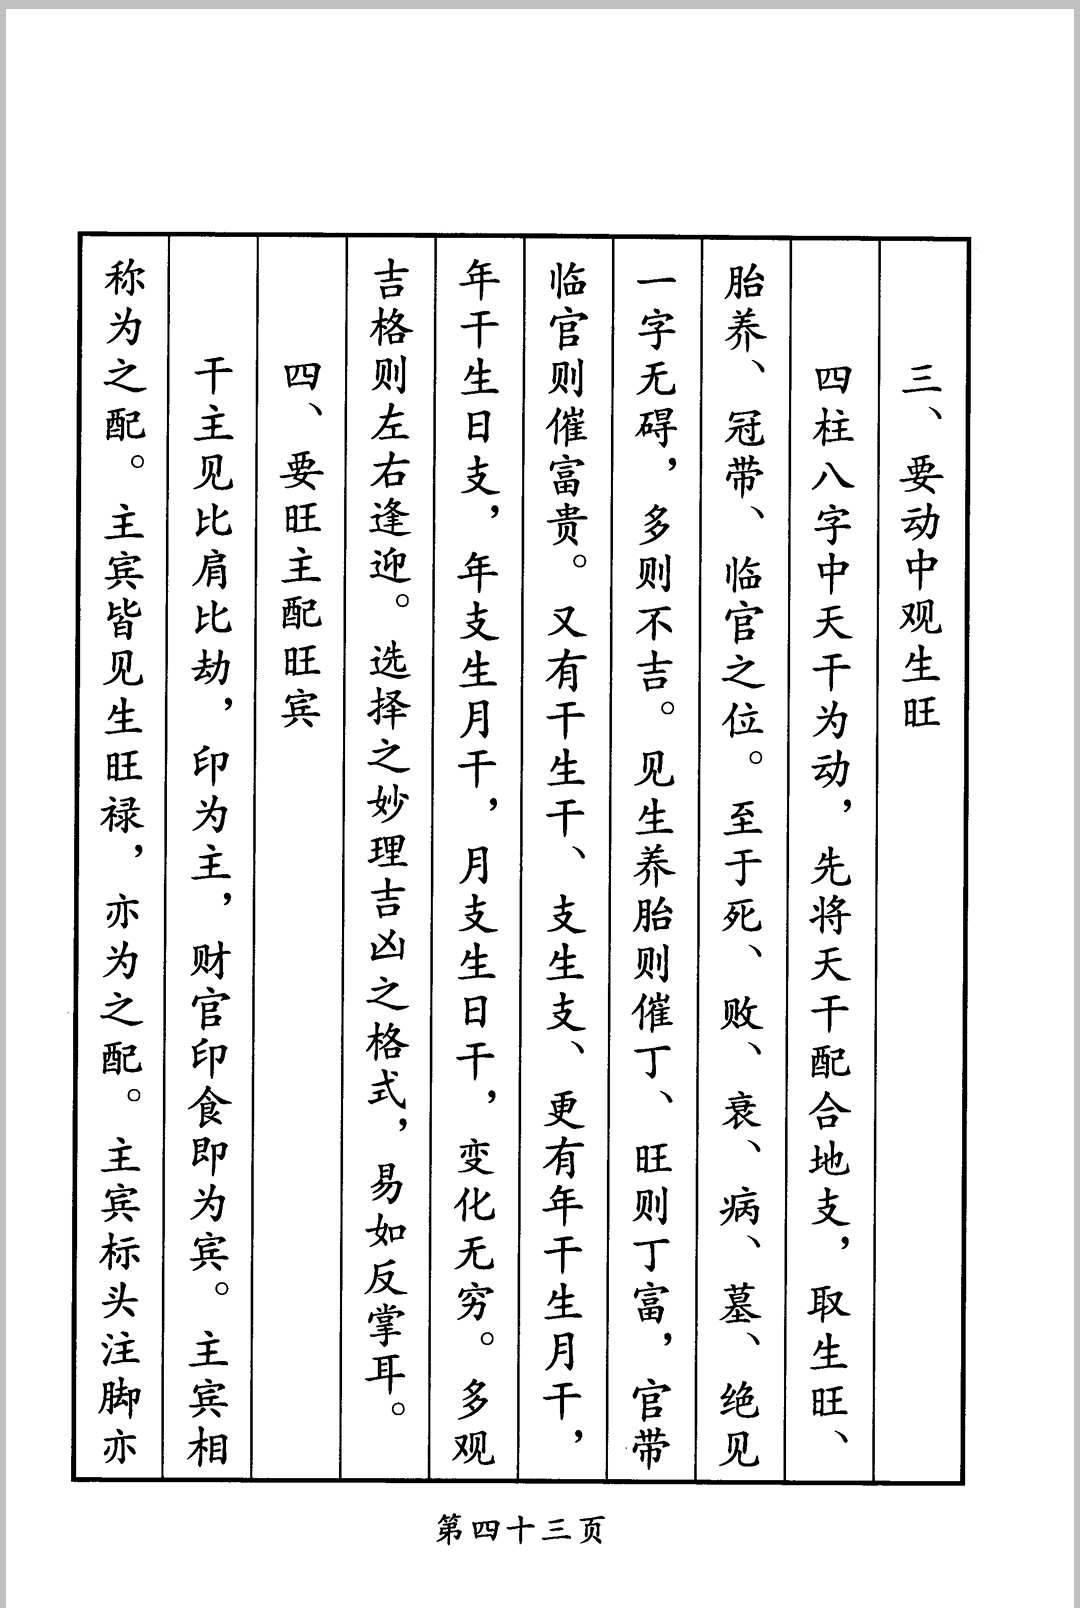 三、要动中观生旺
四柱八字中天干为动，先将天干配合地支，取生旺、
胎养、冠带、临官之位。至于死、败、衰、病、墓、绝见
一字无碍，多则不吉。见生养胎则催丁、旺则丁富，官带
临官则催富贵。又有干生干、支生支、更有年干生月干，
年干生日支，年支生月干，月支生日干，变化无穷。多观
吉格则左右逢迎。选择之妙理吉凶之格式，易如反掌耳。
四、要旺主配旺宾
干主见比肩比劫，印为主，财官印食即为宾。主宾相
称为之配。主宾皆见生旺禄，亦为之配。主宾标头注脚亦
第四十三页